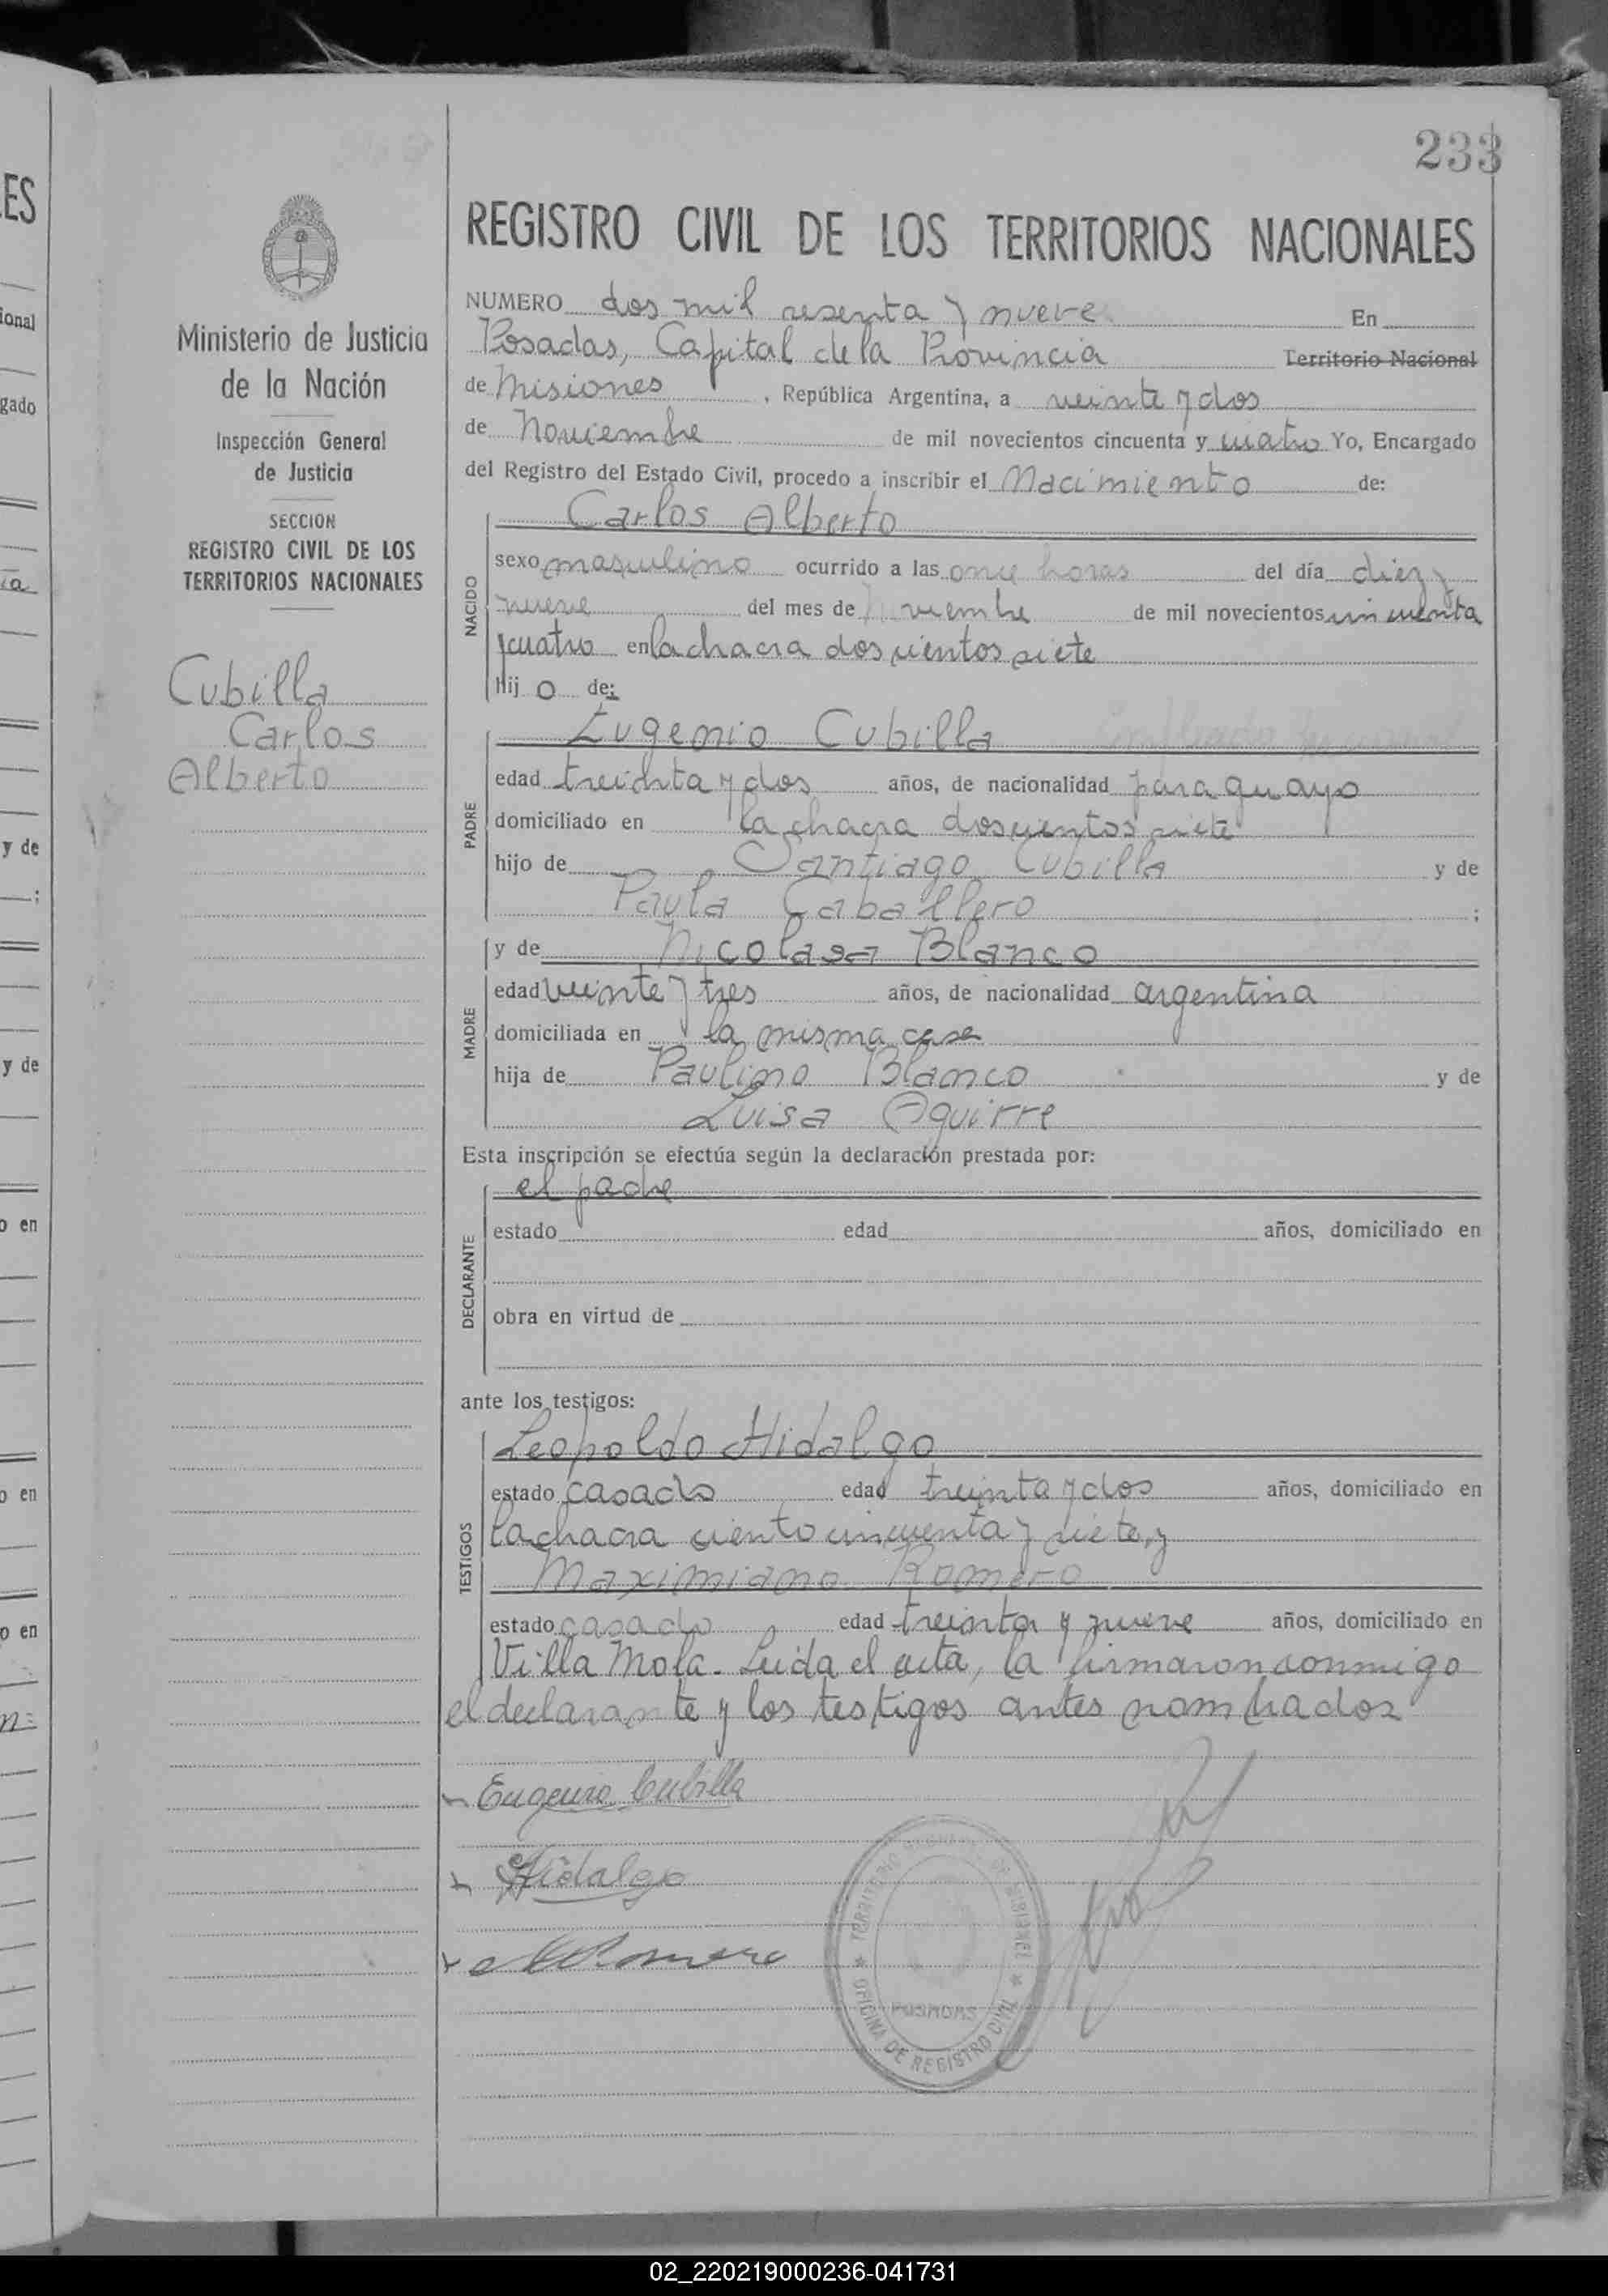 233
REGISTRO CIVIL DE LOS TERRITORIOS NACIONALES
Ministerio de Justicia
de la Nación
Inspección General
de Justicia
SECCION
REGISTRO CIVIL DE LOS
TERRITORIOS NACIONALES
Cubilla
Carlos
Alberto
NUMERO dos mil sesenta y nueve En
Posadas, Capital de la Provincia Territorio Nacional
de Misiones, República Argentina, a veinte y dos
de Noviembre de mil novecientos cincuenta y cuatro Yo, Encargado
del Registro del Estado Civil, procedo a inscribir el Nacimiento de:
NACIDO
Carlos Alberto
sexo masculino ocurrido a las once horas del día diez y
nueve del mes de Noviembre de mil novecientos cincuenta
y cuatro en la chacra doscientos siete
Hij o de:
PADRE
Eugenio Cubilla
edad treinta y dos años, de nacionalidad paraguayo
domiciliado en la chacra doscientos siete
hijo de Santiago Cubilla y de
Paula Caballero ;
MADRE
y de Nicolasa Blanco
edad veinte y tres años, de nacionalidad argentina
domiciliada en la misma casa
hija de Paulino Blanco y de
Luisa Aguirre
Esta inscripción se efectúa según la declaración prestada por:
DECLARANTE
el padre
estado edad años, domiciliado en
obra en virtud de
ante los testigos:
TESTIGOS
Leopoldo Hidalgo
estado casado edad treinta y dos años, domiciliado en
la chacra ciento cincuenta y siete, y
Maximiano Romero
estado casado edad treinta y nueve años, domiciliado en
Villa Mola. Leida el acta, la firmaron conmigo
el declarante y los testigos antes nombrados
Eugenio Cubilla
Hidalgo
M Romero
TERRITORIO NACIONAL DE MISIONES
POSADAS
OFICINA DE REGISTRO CIVIL
ES
ional
gado
ia
y de
;
y de
o en
o en
o en
n=
02_220219000236-041731